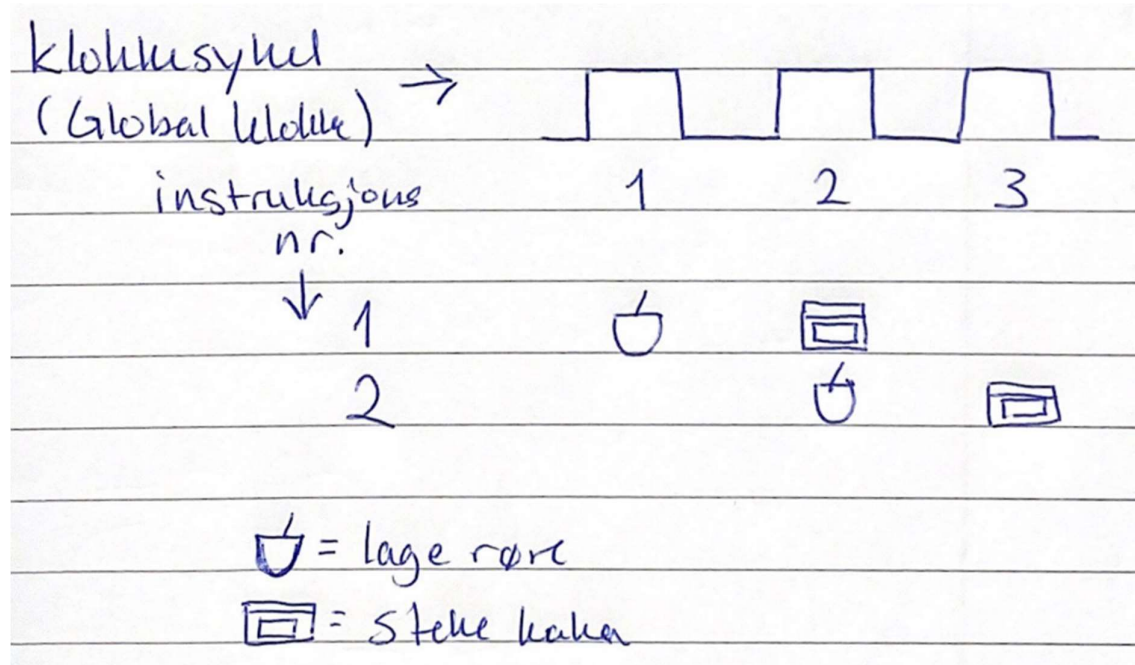 klokkesykel
(Global klokke) →
instruksjons 1 2 3
nr.
↓ 1
2
= lage røre
= steke kaka